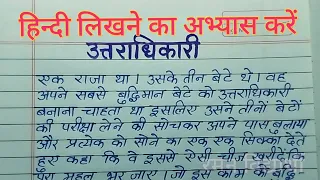 हिन्दी लिखने का अभ्यास करें
उत्तराधिकारी
एक राजा था। उसके तीन बेटे थे। वह
अपने सबसे बुद्धिमान बेटे को उत्तराधिकारी
बनाना चाहता था इसलिए उसने तीनों बेटों
की परीक्षा लेने की सोचकर अपने पास बुलाया
और प्रत्येक को सोने का एक एक सिक्का देते
हुए कहा कि वे इससे ऐसी चीज खरीदे कि
पूरा महल भर जाए। जो इस काम को